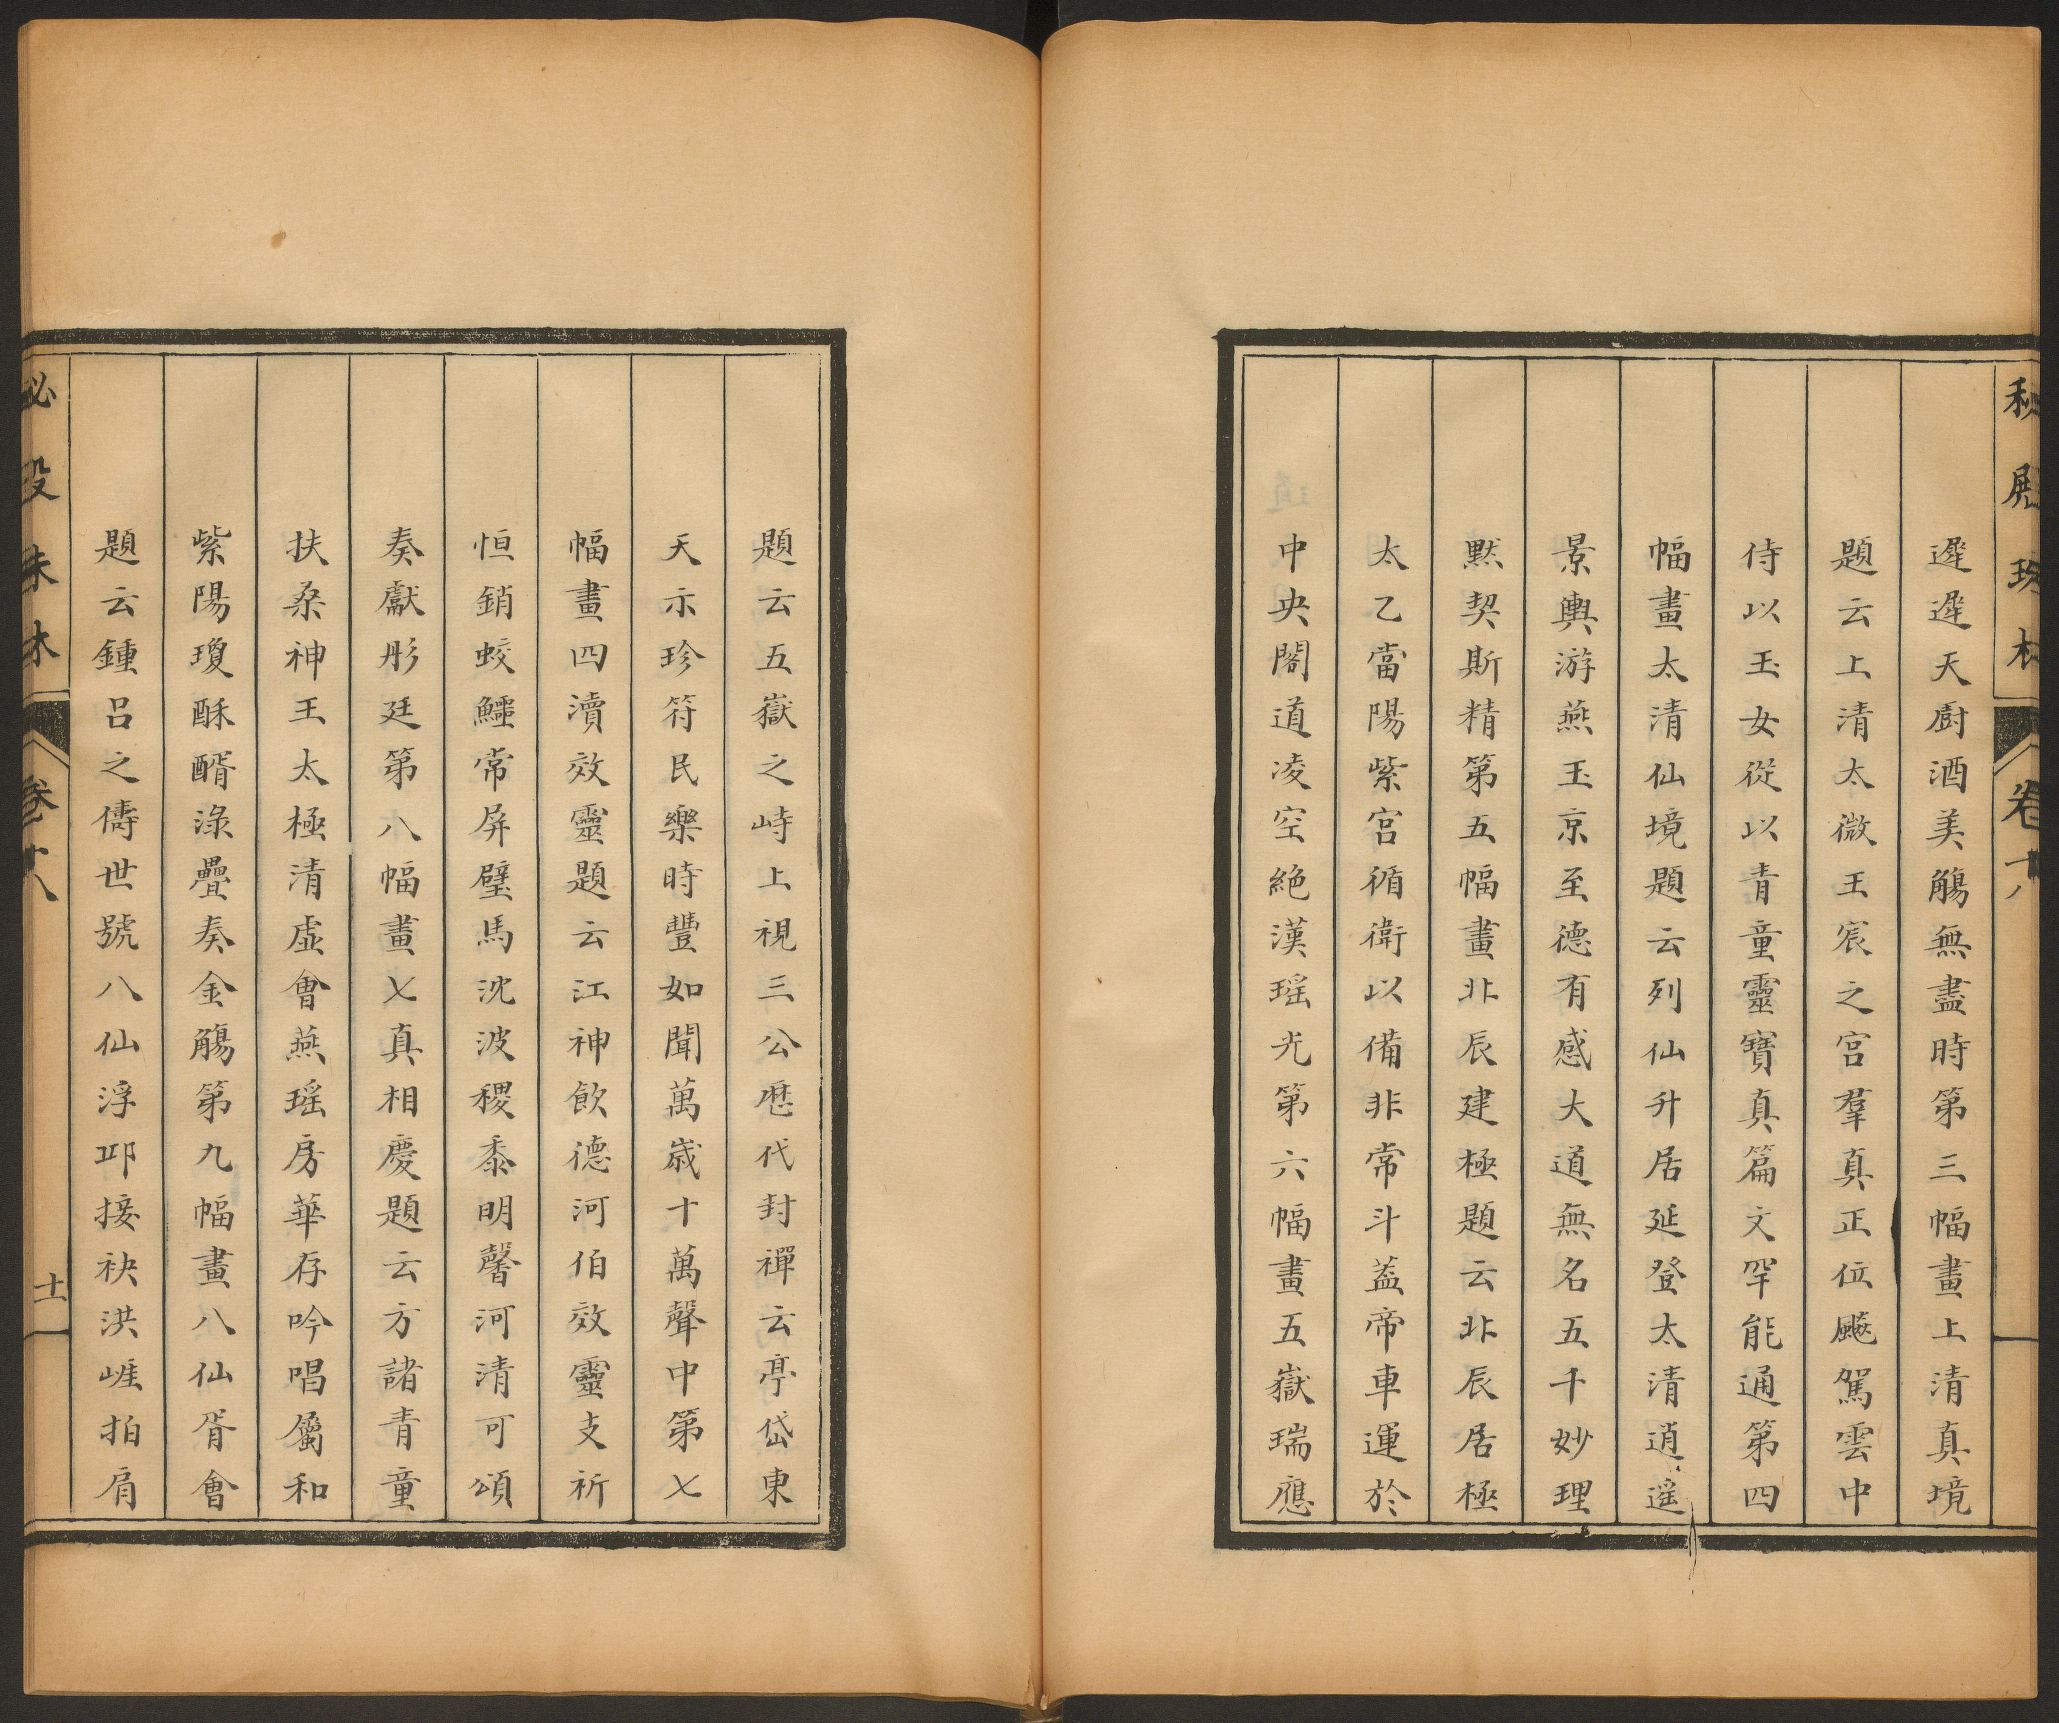 秘殿珠林
卷十八
遲遲天廚酒美觴無盡時第三幅畫上清真境
題云上清太微王宸之宮羣真正位飈駕雲中
侍以玉女從以青童靈寶真篇文罕能通第四
幅畫太清仙境題云列仙升居延登太清逍遥
景輿游燕玉京至德有感大道無名五千妙理
黙契斯精第五幅畫北辰建極題云北辰居極
太乙當陽紫宮循衛以備非常斗蓋帝車運於
中央閣道凌空絶漢瑶光第六幅畫五嶽瑞應
題云五嶽之峙上視三公歷代封禪云亭岱東
天示珍符民樂時豐如聞萬歲十萬聲中第七
幅畫四瀆效靈題云江神飲德河伯效靈支祈
恒銷蛟鱷常屏璧馬沈波稷黍明馨河清可頌
奏獻彤廷第八幅畫七真相慶題云方諸青童
扶桑神王太極清虛會燕瑶房華存吟唱屬和
紫陽瓊酥醑渌疊奏金觴第九幅畫八仙胥會
題云鍾呂之儔世號八仙浮邱接袂洪崕拍肩
秘殿珠林
卷十八
十一